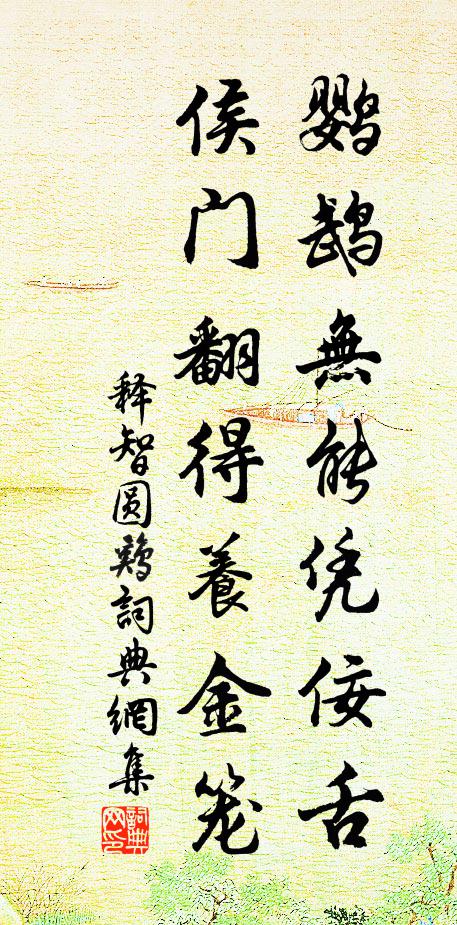 鹦鹉無能凭佞舌
侯门翻得養金笼
释智圆鸡詞典網集
詞典网印